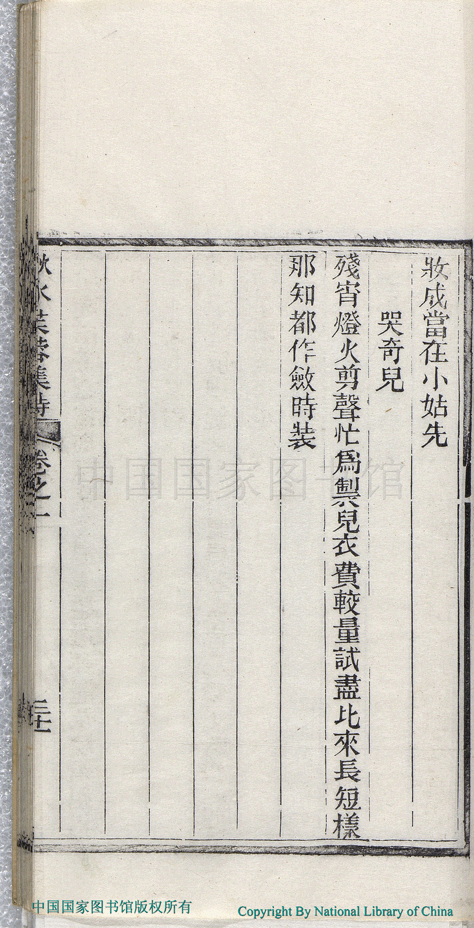 妝成當在小姑先
哭奇兒
殘宵燈火剪聲忙爲製兒衣費較量試盡比來長短樣
那知都作斂時裝
秋水芙蓉集詩 卷之二
中国国家图书馆
中国国家图书馆版权所有
Copyright By National Library of China